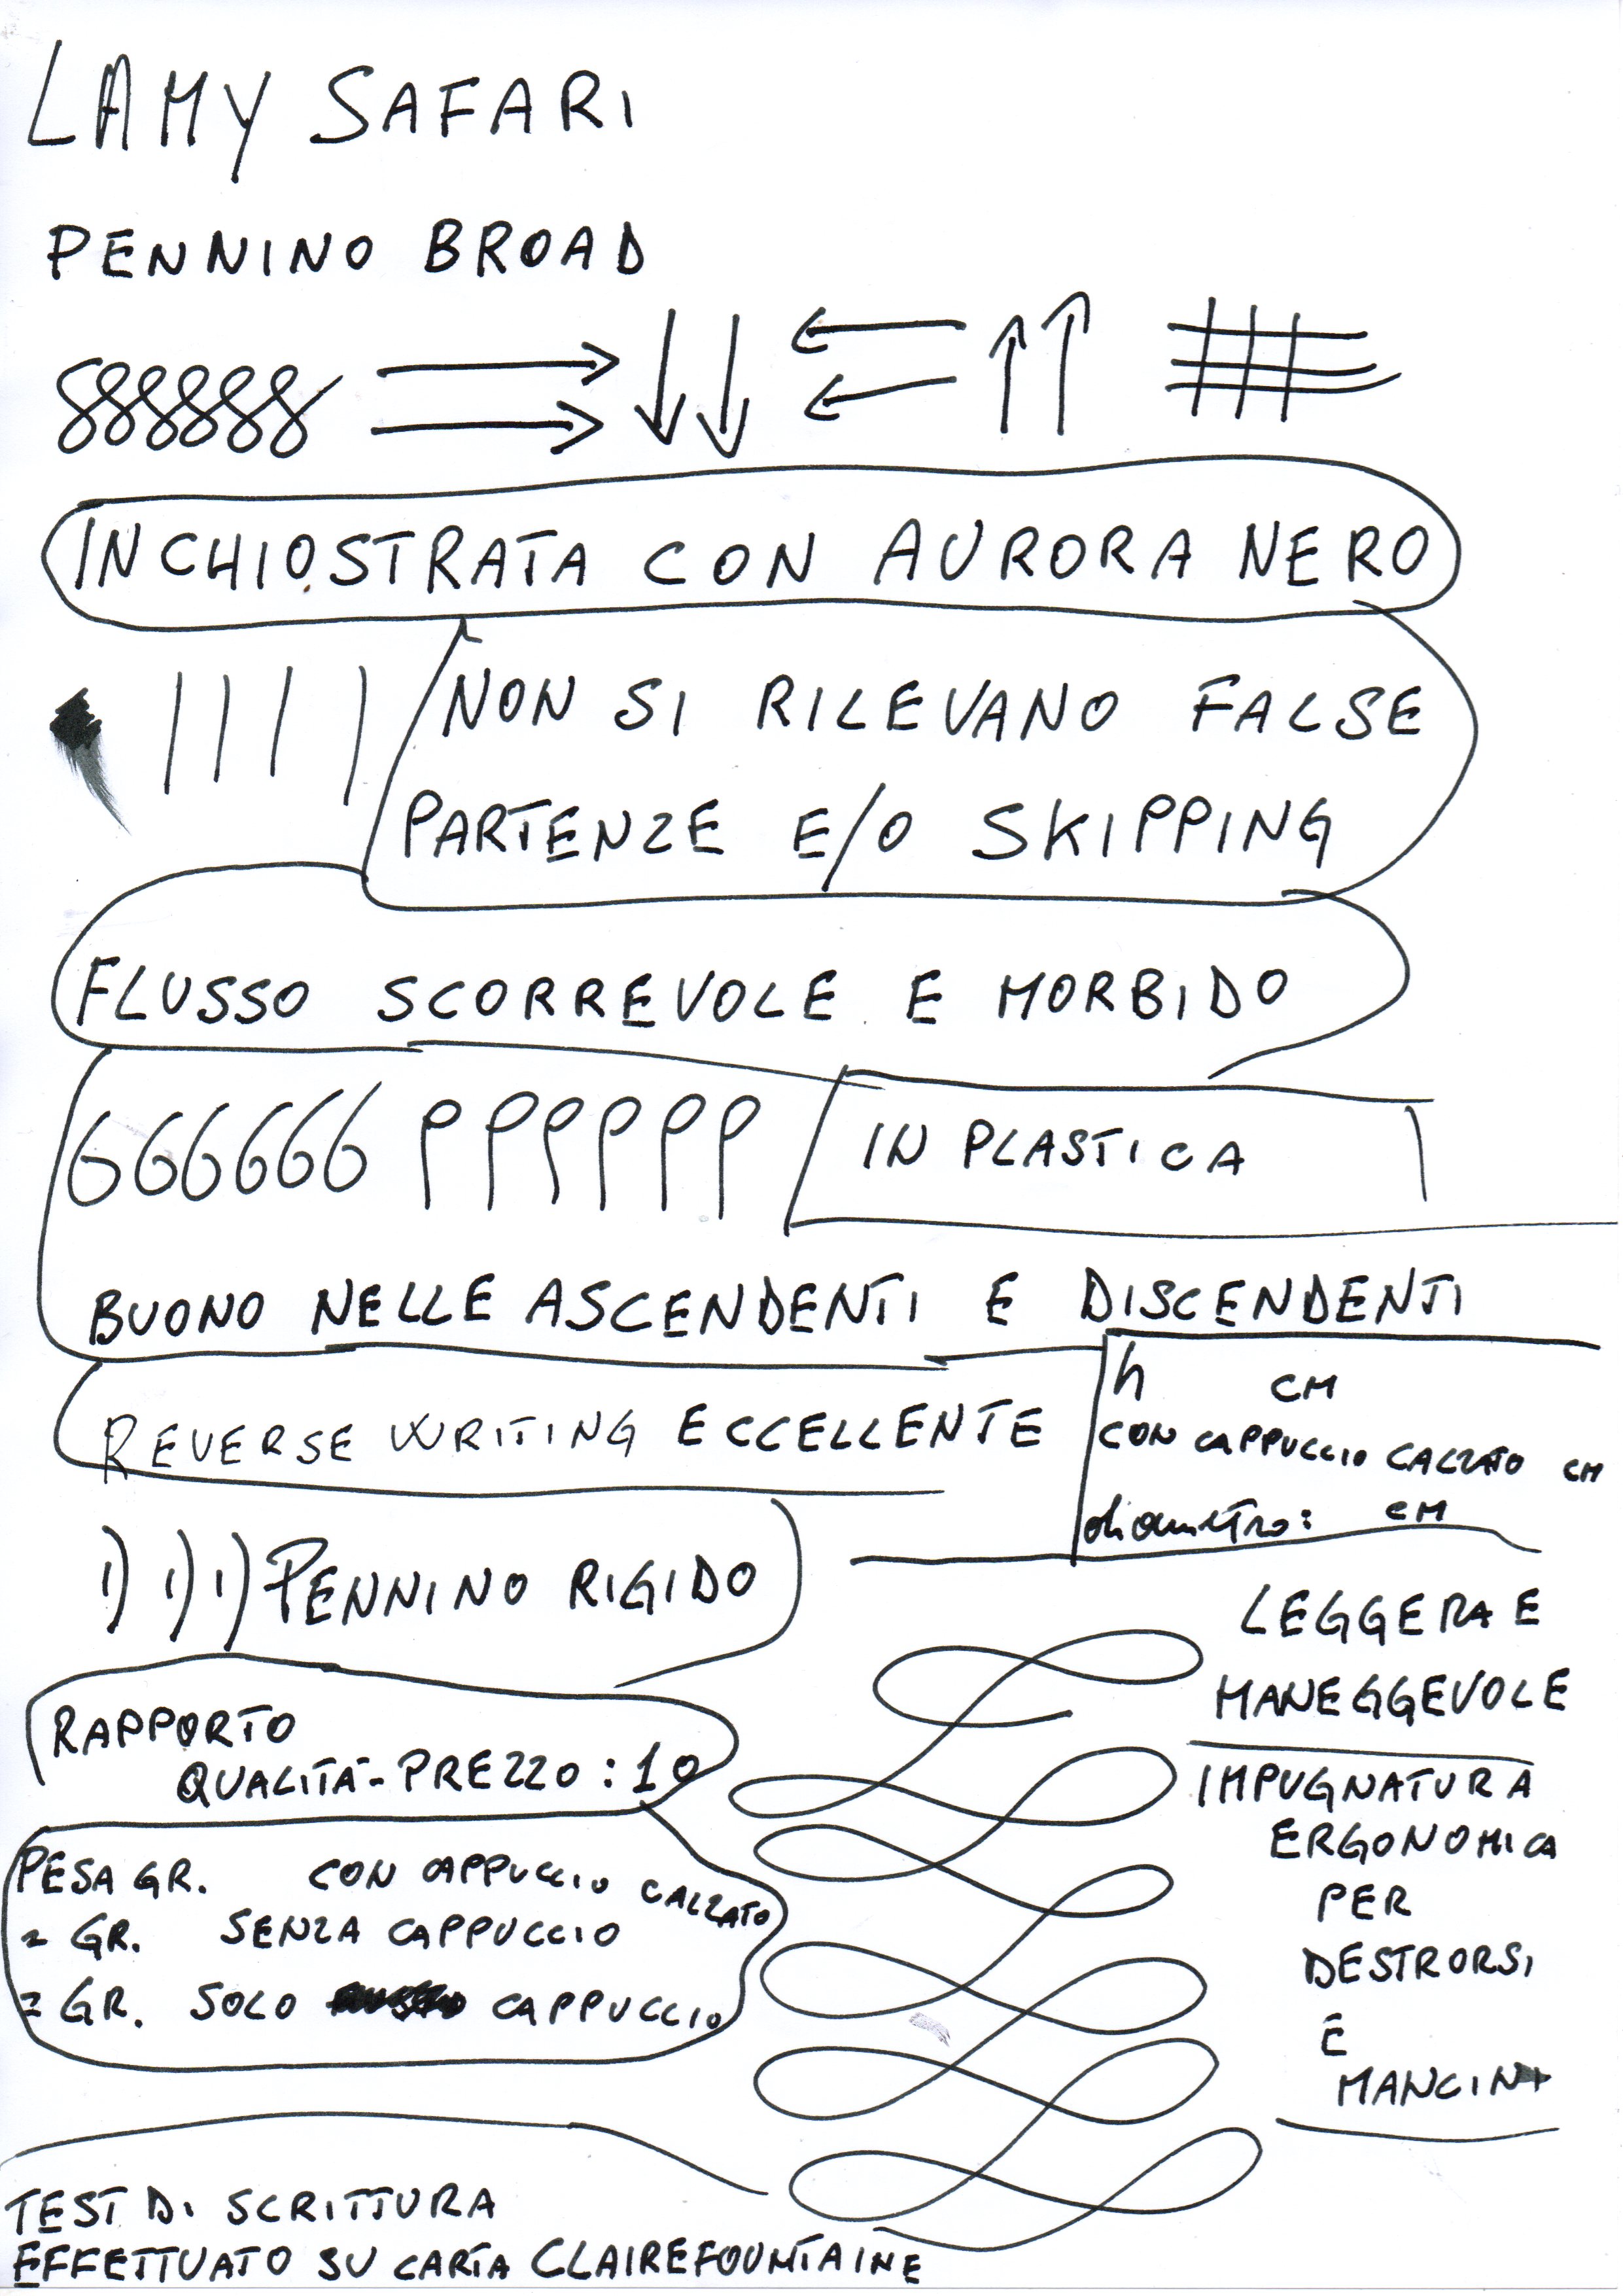 LAMY SAFARI
PENNINO BROAD
888888
INCHIOSTRATA CON AURORA NERO
NON SI RILEVANO FALSE
PARTENZE E/O SKIPPING
FLUSSO SCORREVOLE E MORBIDO
666666 PPPPPP
IN PLASTICA
BUONO NELLE ASCENDENTI E DISCENDENTI
REVERSE WRITING ECCELLENTE
h CM
CON CAPPUCCIO CALZATO CM
diametro: CM
PENNINO RIGIDO
LEGGERA E
MANEGGEVOLE
IMPUGNATURA
ERGONOMICA
PER
DESTRORSI
E
MANCINI
RAPPORTO
QUALITÀ-PREZZO : 10
PESA GR. CON CAPPUCCIO CALZATO
= GR. SENZA CAPPUCCIO
= GR. SOLO CAPPUCCIO
TEST DI SCRITTURA
EFFETTUATO SU CARTA CLAIREFOUNTAINE